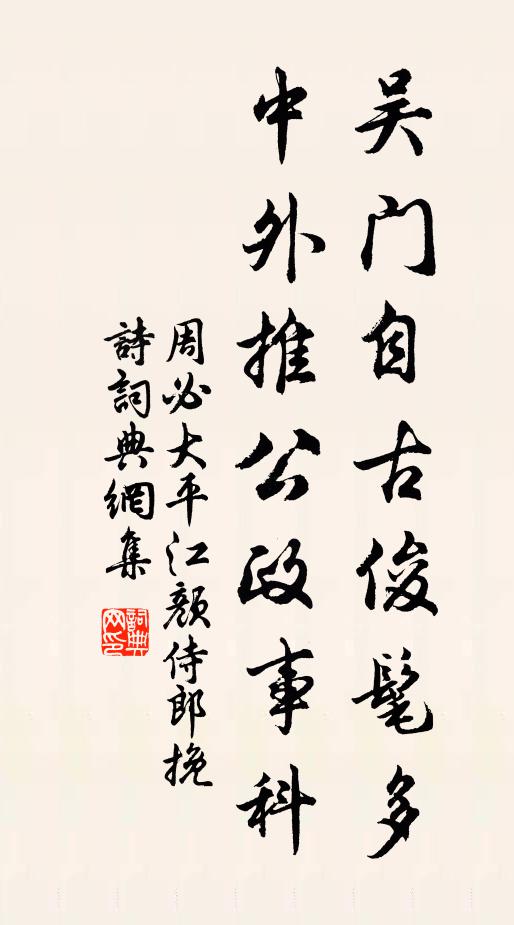 吴门自古俊髦多
中外推公政事科
周必大平江颜侍郎挽
詩詞典網集
詞典网印